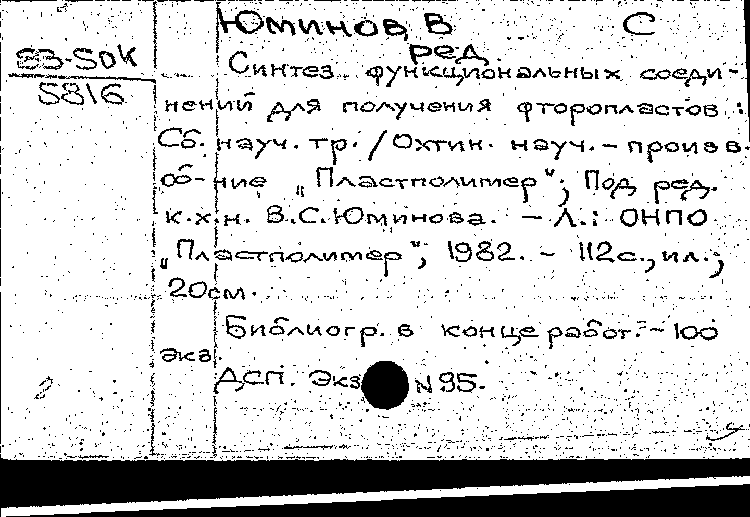 Юминов, В С
ред.
83-5ДК
5816
Синтез функциональных соеди-
нений для получения фторопластов :
Сб. науч. тр. / Охтин. науч. - произв.
об-ние „Пластполимер"; Под ред.
к.х.н. В.С.Юминова. - Л.: ОНПО
„Пластполимер", 1982. - 112с., ил.;
20см.
Библиогр. в конце работ. - 100
экз.
ДСП. Экз N 95.